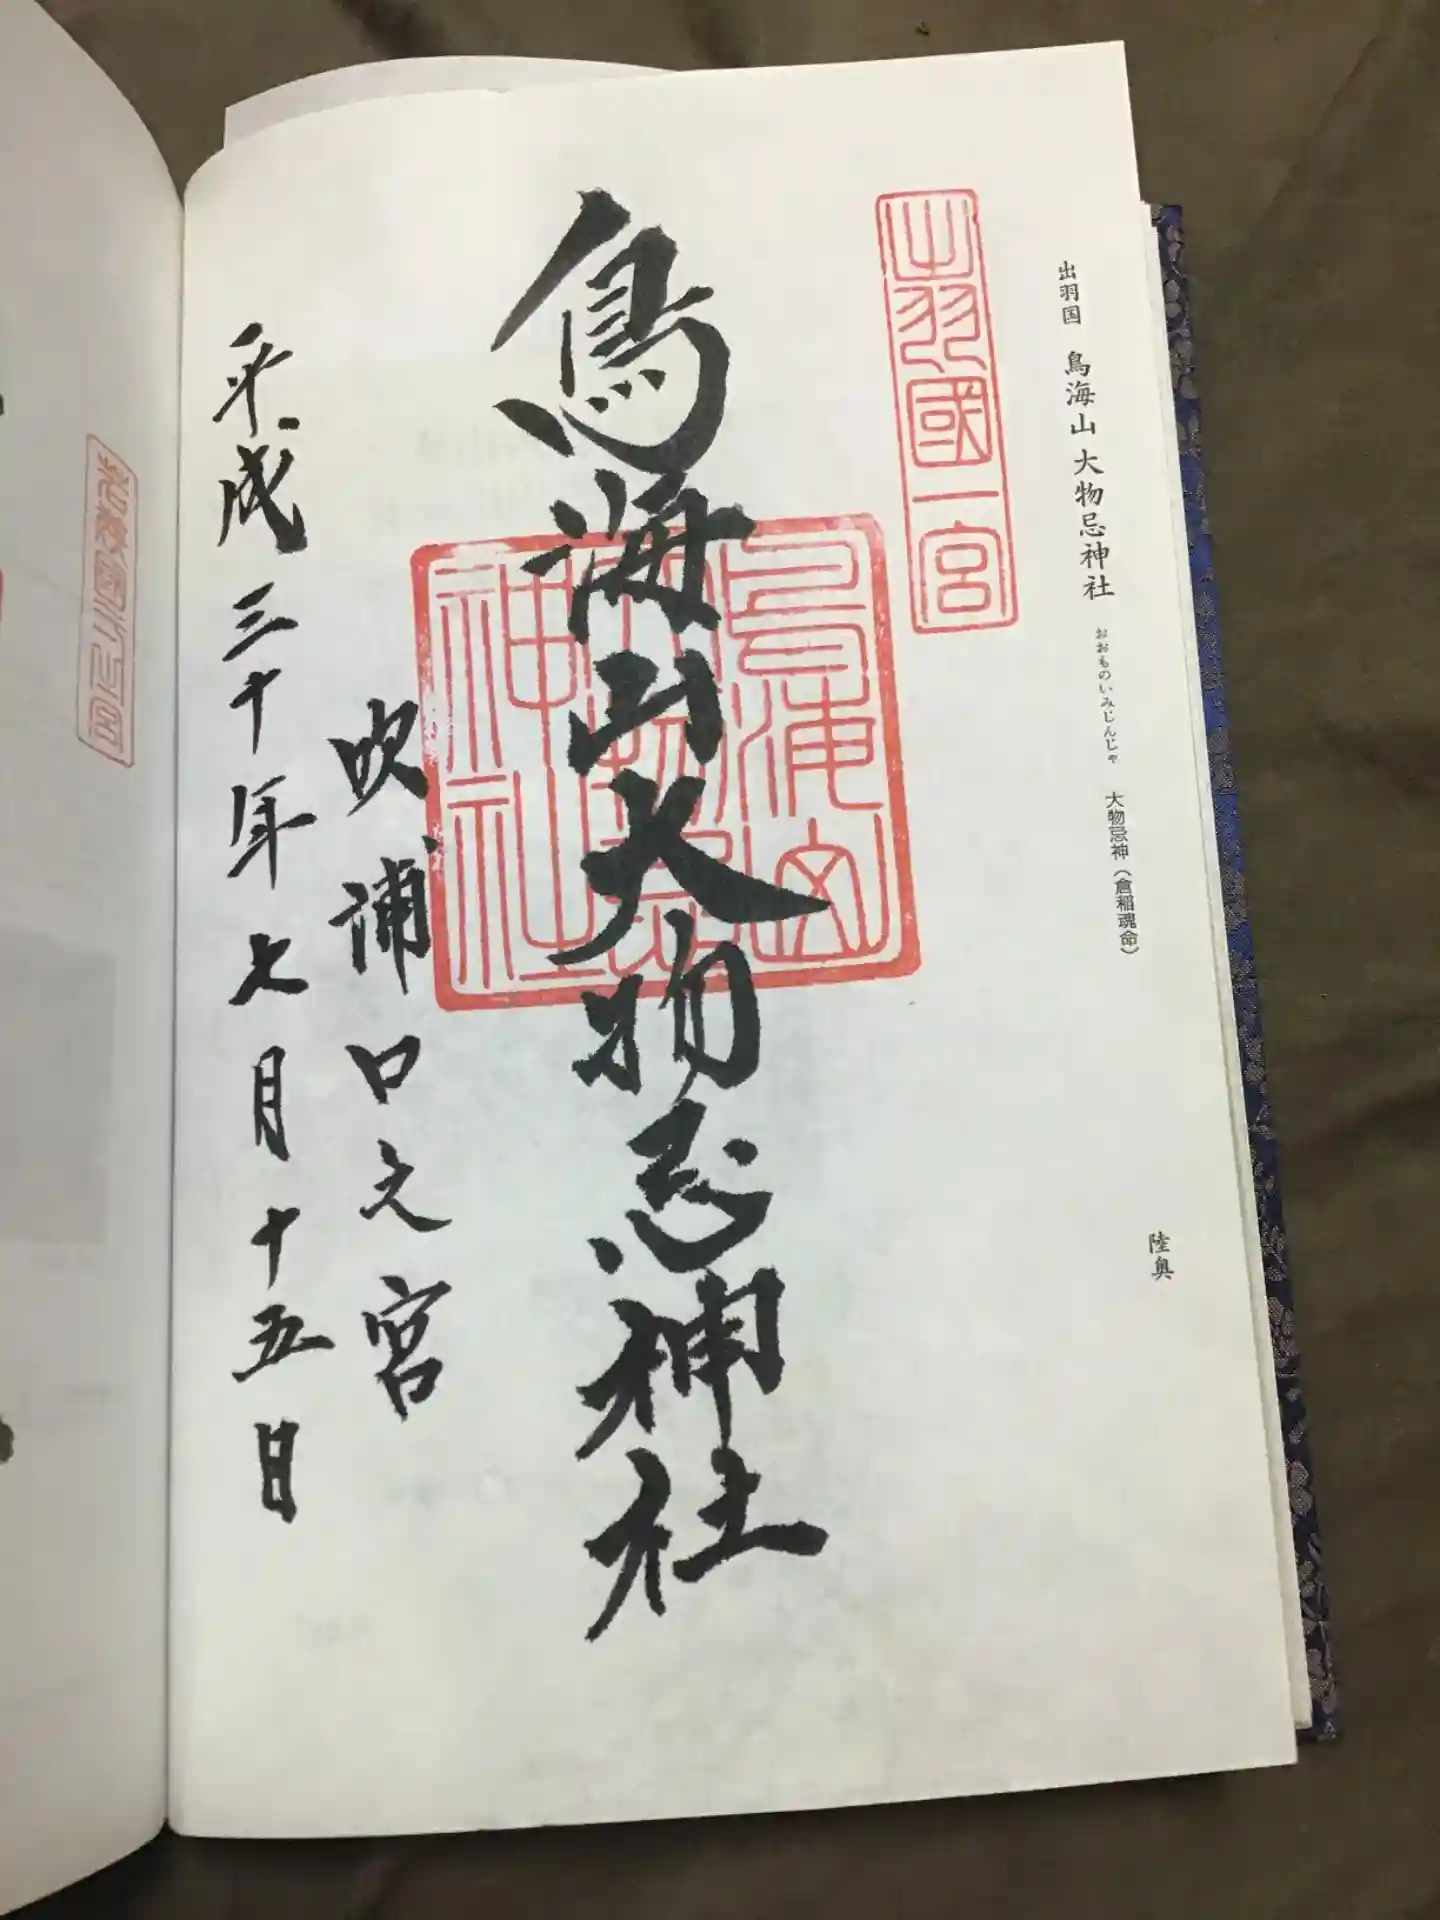 出羽国 鳥海山大物忌神社 おおものいみじんじゃ 大物忌神（倉稲魂命） 陸奥
出羽國一宮
鳥海山大物忌神社
鳥海山大物忌神社
吹浦口之宮
平成三十年七月十五日